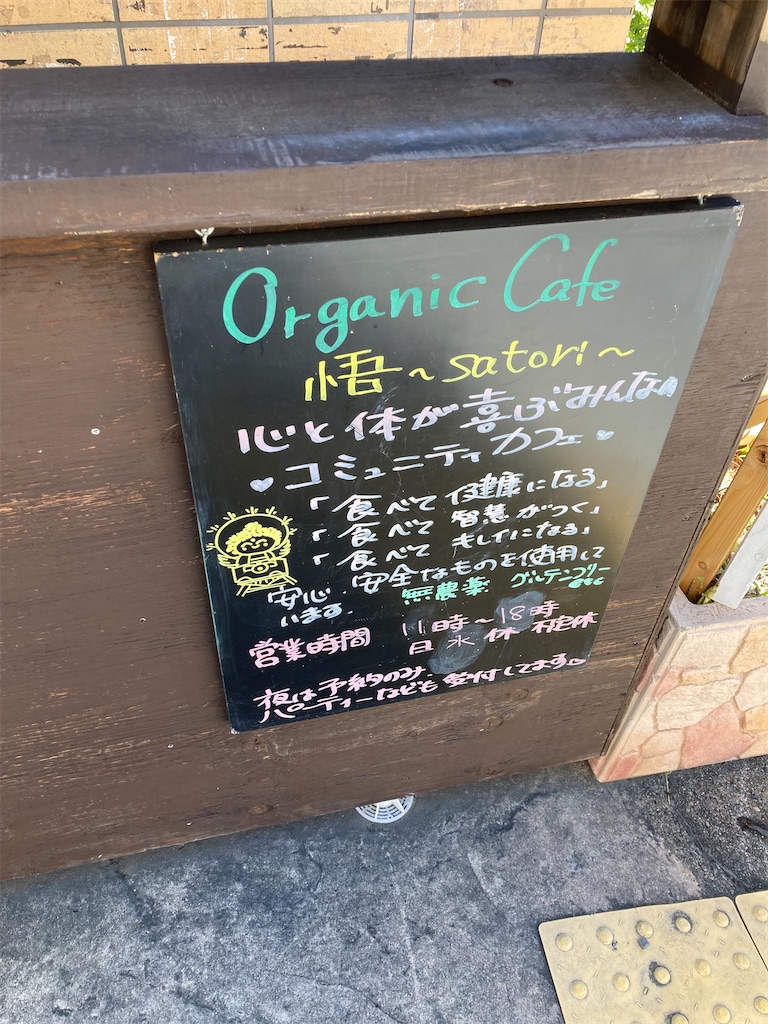 Organic Cafe
悟～satori～
心と体が喜ぶみんなの
コミュニティカフェ
「食べて健康になる」
「食べて智慧がつく」
「食べてキレイになる」
安心 安全なものを使用して
います. 無農薬 グルテンフリー
etc
営業時間 11時～18時
日 水 休 不定休
夜は予約のみ.
パーティーなども受付してます